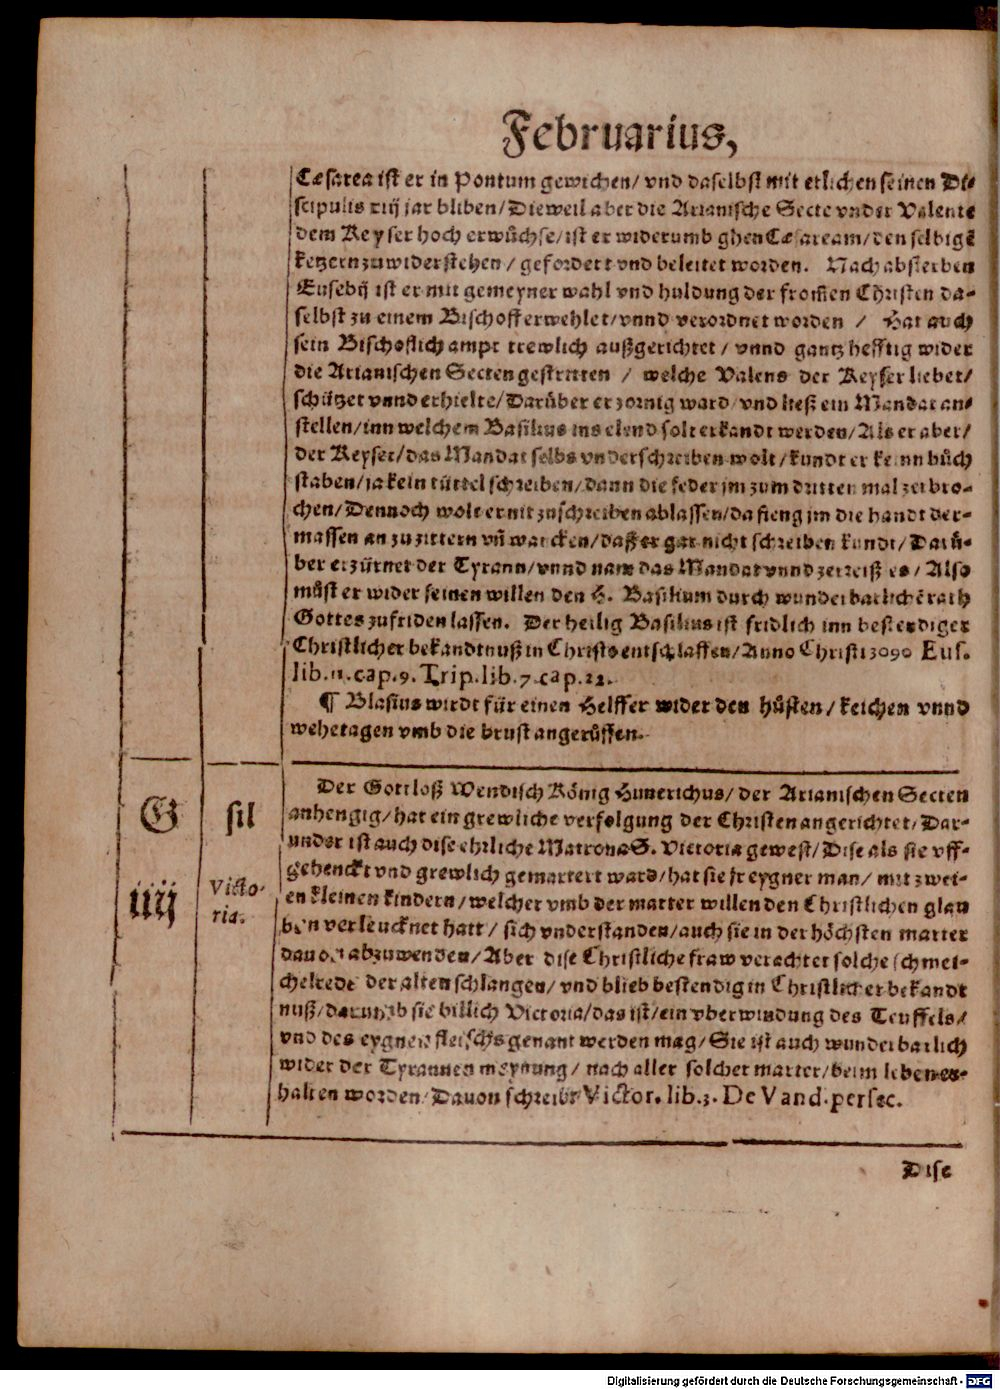 Februarius,
Cæsarea ist er in Pontum gewichen/ vnd daselbst mit etlichen seinen Di-
scipulis xiij jar bliben/ Dieweil aber die Arianische Secte vnder Valente
dem Keyser hoch erwůchse/ ist er widerumb ghen Cæsaream/ den selbigē
ketzern zuwiderstehen/ gefordert vnd beleitet worden. Nach absterben
Eusebij ist er mit gemeyner wahl vnd huldung der from̃en Christen da-
selbst zu einem Bischoff erwehlet/ vnnd verordnet worden / Hat auch
sein Bischoflich ampt trewlich außgerichtet/ vnnd gantz hefftig wider
die Arianischen Secten gestritten / welche Valens der Keyser liebet/
schützet vnnd erhielte/ Darüber er zornig ward/ vnd ließ ein Mandat an-
stellen/ inn welchem Basilius ins elend solt erkandt werden/ Als er aber/
der Keyser/ das Mandat selbs vnderschreiben wolt/ kundt er keinn bůch
staben/ ja kein tüttel schreiben/ dann die feder jm zum dritten mal zerbro-
chen/ Dennoch wolt er nit zuschreiben ablassen/ da fieng jm die handt der-
massen an zu zittern vñ wancken/ daß er gar nicht schreiben kundt/ Darü-
ber erzürnet der Tyrann/ vnnd nam das Mandat vnnd zerreiß es/ Also
můst er wider seinen willen den H. Basilium durch wunderbarlichē rath
Gottes zufriden lassen. Der heilig Basilius ist fridlich inn bestendiger
Christlicher bekandtnuß in Christo entschlaffen/ Anno Christi 3090 Eus.
lib.11.cap.9. Trip.lib.7.cap.22.
¶ Blasius wirdt für einen Helffer wider den hůsten/ keichen vnnd
wehetagen vmb die brust angerůffen.
G sil
iiij Victo-
ria.
Der Gottloß Wendisch König Hunerichus/ der Arianischen Secten
anhengig/ hat ein grewliche verfolgung der Christen angerichtet/ Dar-
under ist auch dise ehrliche Matrona S. Victoria gewest/ Dise als sie vff-
gehenckt vnd grewlich gemartert ward/ hat sie jr eygner man/ mit zwei-
en kleinen kindern/ welcher vmb der marter willen den Christlichen glau
ben verleucknet hatt/ sich vnderstanden/ auch sie in der höchsten marter
dauon abzuwenden/ Aber dise Christliche fraw verachtet solche schmei-
chelrede der alten schlangen/ vnd blieb bestendig in Christlicher bekandt
nuß/ darumb sie billich Victoria/ das ist/ ein vberwindung des Teuffels/
vnd des eygnen fleischs genant werden mag/ Sie ist auch wunderbarlich
wider der Tyrannen meynung/ nach aller solcher marter/ beim leben er-
halten worden/ Dauon schreibt Victor. lib.3. De Vand.persec.
Dise
Digitalisierung gefördert durch die Deutsche Forschungsgemeinschaft - DFG